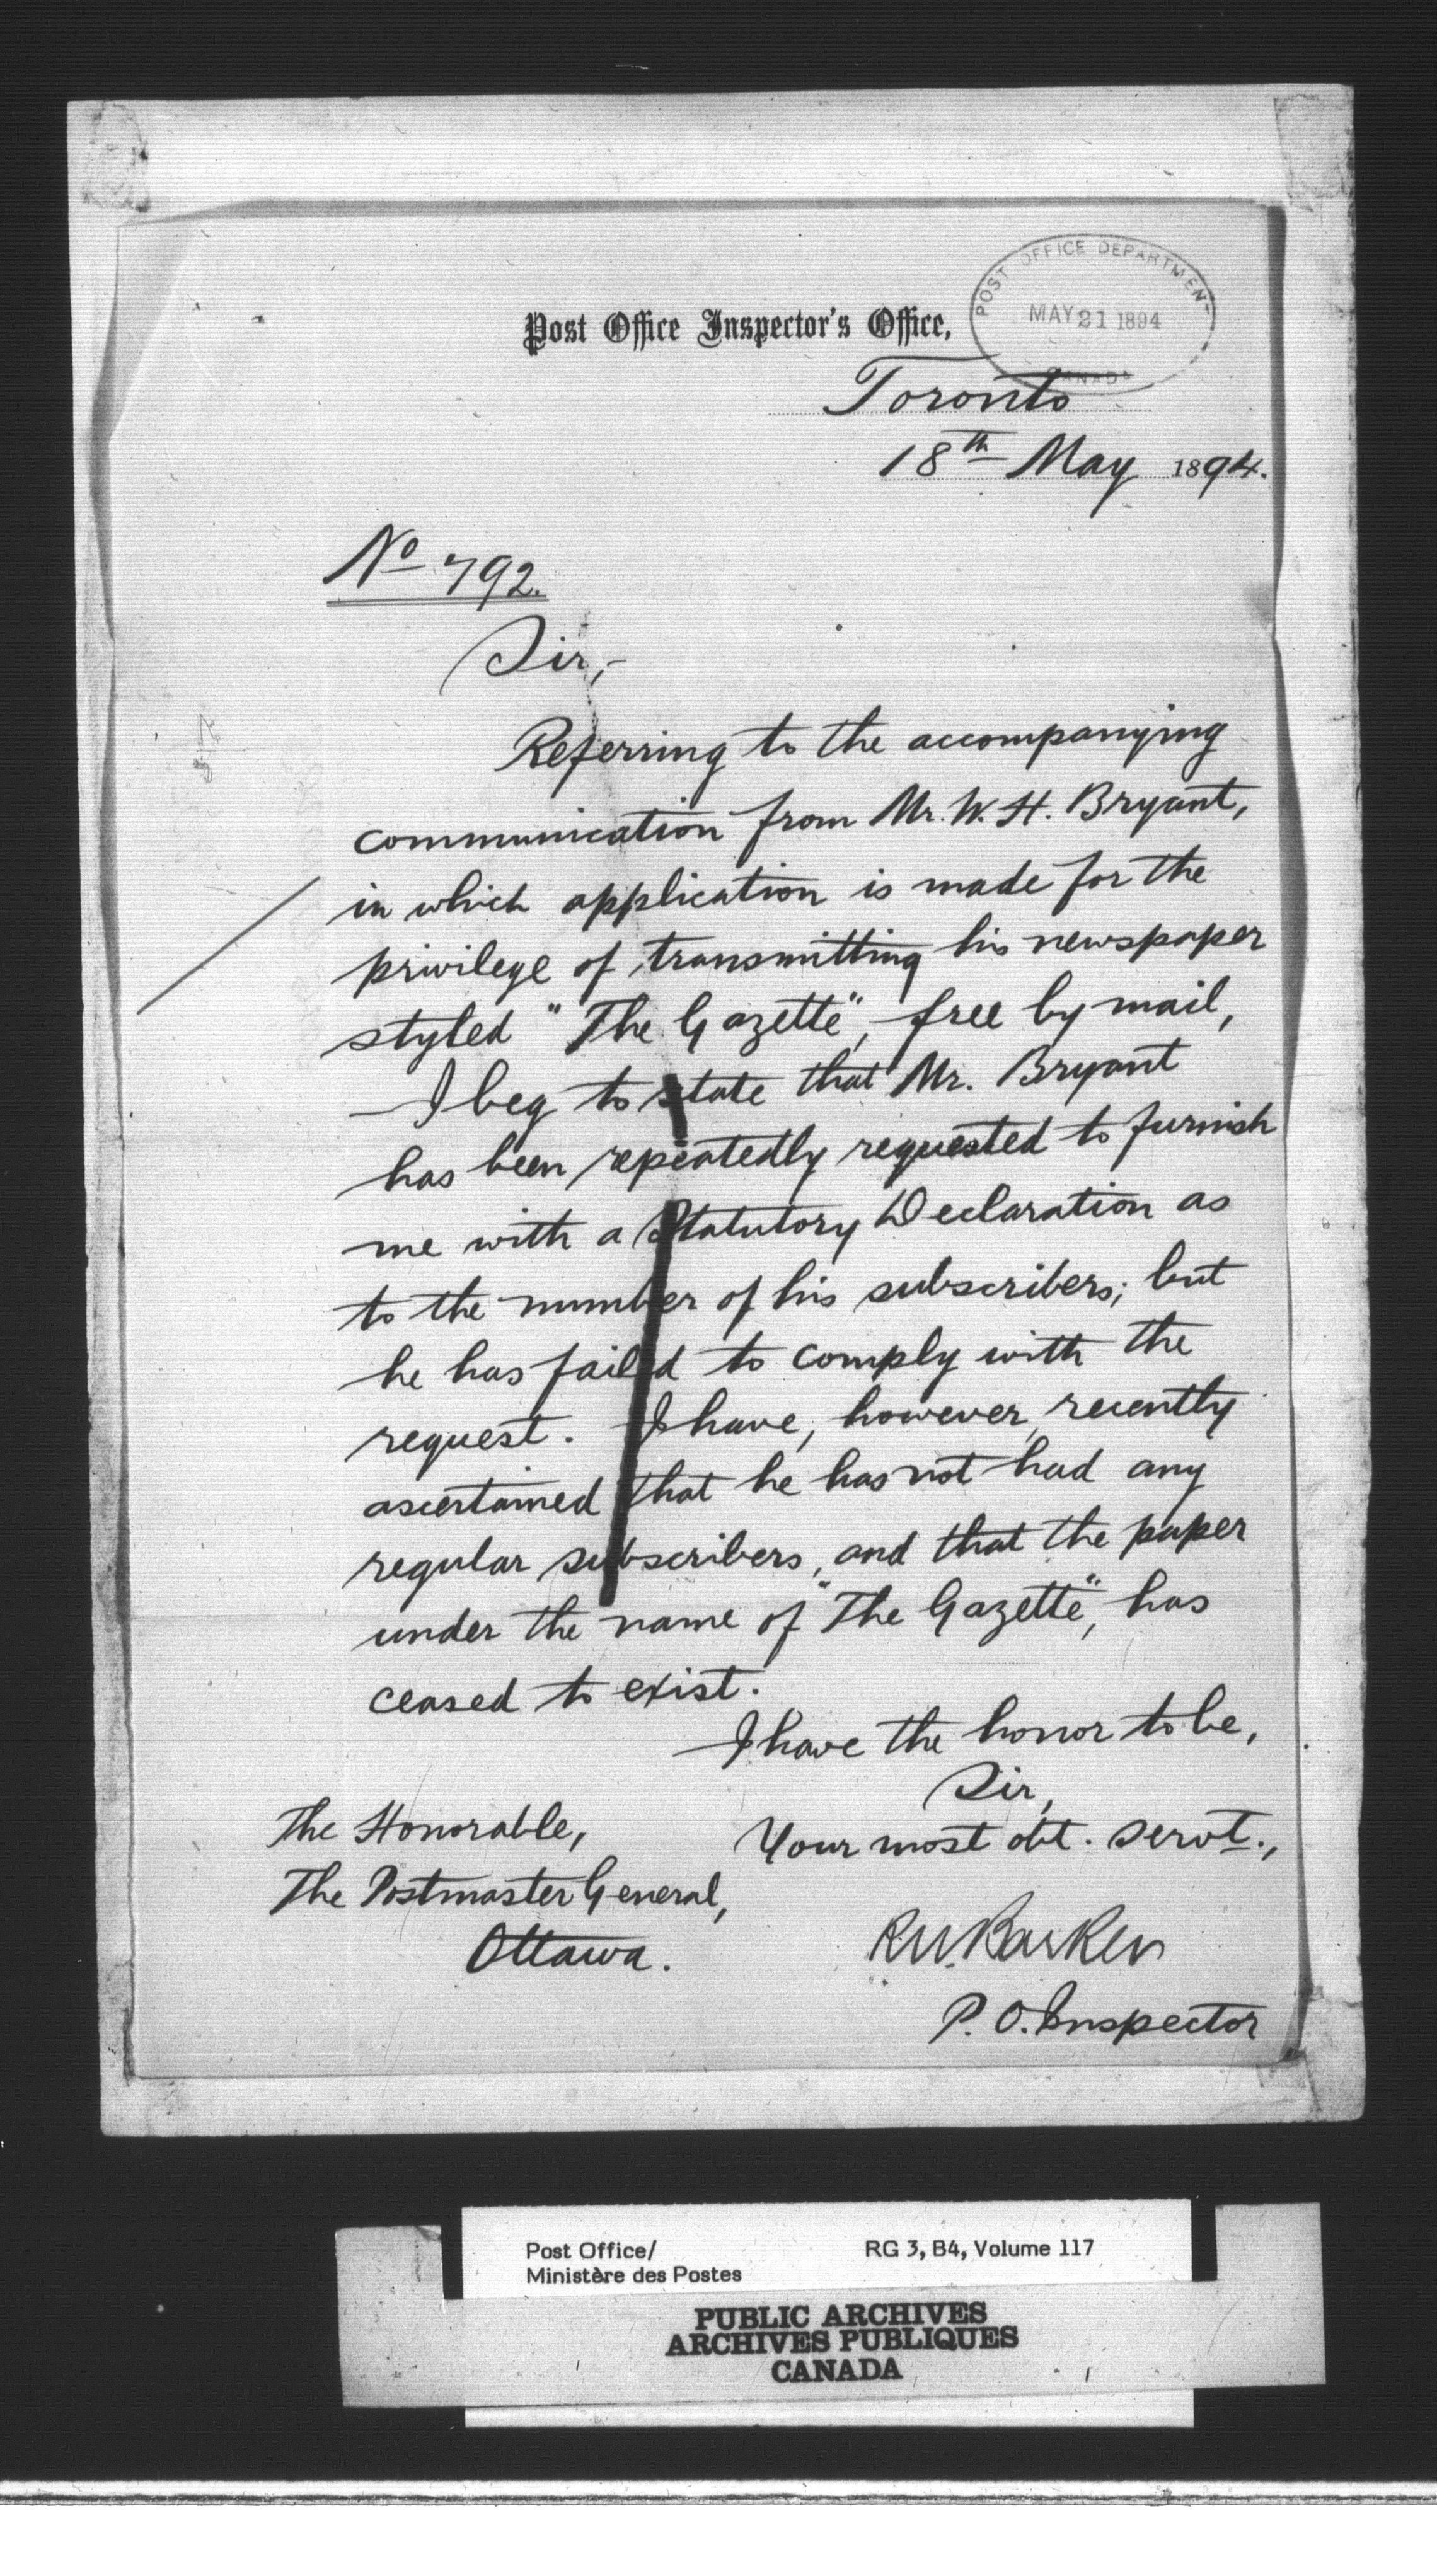 POST OFFICE DEPARTMENT
MAY 21 1894
CANADA
Post Office Inspector's Office,
Toronto
18th May 1894.
No 792.
Sir,-
Referring to the accompanying
communication from Mr. W. H. Bryant,
in which application is made for the
privilege of transmitting his newspaper
styled "The Gazette", free by mail,
—I beg to state that Mr. Bryant
has been repeatedly requested to furnish
me with a Statutory Declaration as
to the number of his subscribers; but
he has failed to comply with the
request. I have, however, recently
ascertained that he has not had any
regular subscribers, and that the paper
under the name of "The Gazette", has
ceased to exist.
I have the honor to be,
Sir,
Your most obt. servt.,
The Honorable,
The Postmaster General,
Ottawa.
RW. Barker
P. O. Inspector
Post Office/
Ministère des Postes
RG 3, B4, Volume 117
PUBLIC ARCHIVES
ARCHIVES PUBLIQUES
CANADA